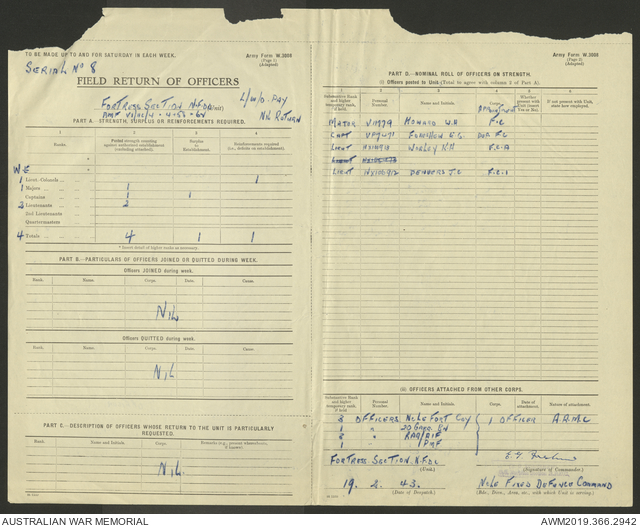 TO BE MADE UP TO AND FOR SATURDAY IN EACH WEEK.
Army Form W.3008
(Page 1)
(Adapted)
SERIAL No 8
FIELD RETURN OF OFFICERS
FORTRESS SECTION N.F.DEF (Unit)
L/W/O PAY
NIL RETURN
PART A.—STRENGTH, SURPLUS OR REINFORCEMENTS REQUIRED.
1 2 3 4
Ranks.
Posted strength counting against authorized establishment (excluding attached).
Surplus to Establishment.
Reinforcements required (i.e., deficits on establishment).
WE
1 Lieut. Colonels 1
1 Majors 1
Captains 1 1
2 Lieutenants 2
2nd Lieutenants
Quartermasters
4 Totals 4 1 1
* Insert detail of higher ranks as necessary.
PART B.—PARTICULARS OF OFFICERS JOINED OR QUITTED DURING WEEK.
Officers JOINED during week.
Rank. Name. Corps. Date. Cause.
NIL
Officers QUITTED during week.
Rank. Name. Corps. Date. Cause.
NIL
PART C.—DESCRIPTION OF OFFICERS WHOSE RETURN TO THE UNIT IS PARTICULARLY REQUESTED.
Rank. Name and Initials. Corps. Date. Remarks (e.g., present whereabouts, if known).
NIL
Army Form W.3008
(Page 2)
(Adapted)
PART D.—NOMINAL ROLL OF OFFICERS ON STRENGTH.
(i) Officers posted to Unit. (Total to agree with column 2 of Part A).
1 2 3 4 5 6
Substantive Rank and higher temporary rank, if held.
Personal Number.
Name and Initials.
Appointment
Whether present with Unit (insert Yes or No).
If not present with Unit, state how employed.
MAJOR HOWARD W.A F.C
CAPT E.G. DEP F.C
LIEUT WORLEY K.H F.C.A
LIEUT
LIEUT NX100912 J.C. F.C.S
(ii) OFFICERS ATTACHED FROM OTHER CORPS.
Substantive Rank and higher temporary rank, if held.
Personal Number.
Name and Initials.
Corps.
Date of attachment.
Nature of attachment.
8 OFFICERS NCLE FORT COY 1 OFFICER A.A.M.C
1 " 20 GARR BN
2 "
1 "
FORTRESS SECTION. N.F.DEF
(Unit.)
(Signature of Commander.)
19. 2. 43.
(Date of Despatch.)
NCLE FIXED DEFENCE COMMAND
(Bde., Divn., Area, etc., with which Unit is serving.)
AUSTRALIAN WAR MEMORIAL
AWM2019.366.2942